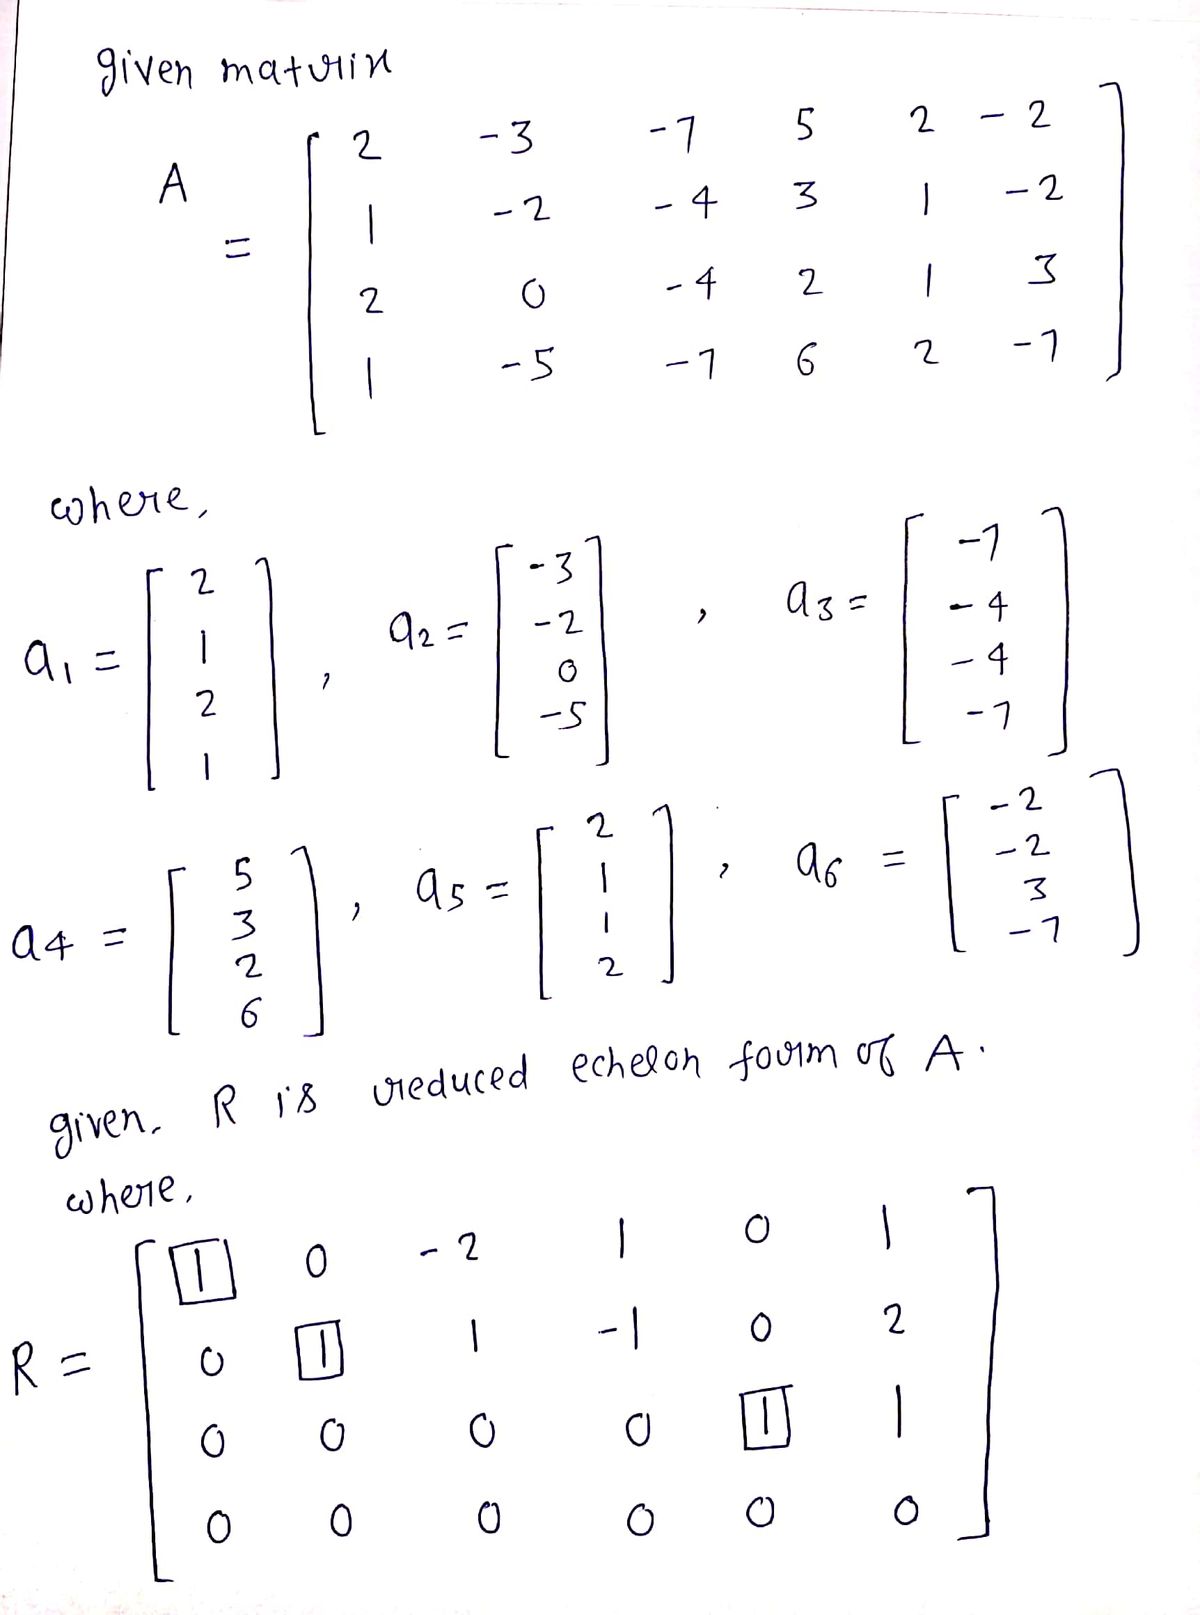 given matrix
A = [ 2 -3 -7 5 2 -2
1 -2 -4 3 1 -2
2 0 -4 2 1 3
1 -5 -7 6 2 -7 ]
where,
a1 = [ 2 1 2 1 ] , a2 = [ -3 -2 0 -5 ] , a3 = [ -7 -4 -4 -7 ]
a4 = [ 5 3 2 6 ] , a5 = [ 2 1 1 2 ] , a6 = [ -2 -2 3 -7 ]
given. R is reduced echelon form of A.
where,
R = [ 1 0 -2 1 0 1
0 1 1 -1 0 2
0 0 0 0 1 1
0 0 0 0 0 0 ]